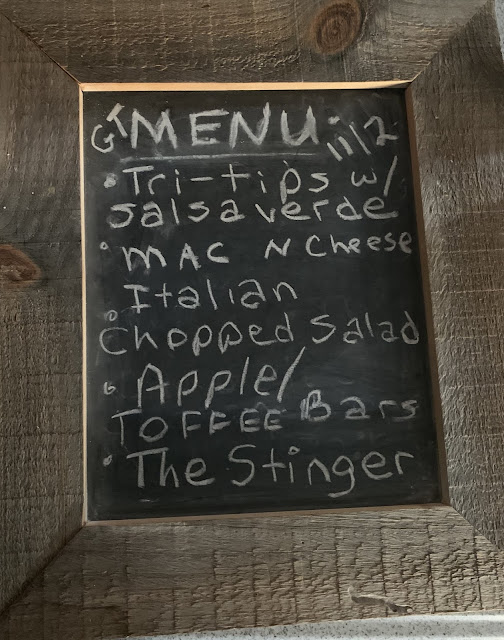 GT MENU 11/2
• Tri-tips w/
salsa verde
• MAC N Cheese
• Italian
Chopped Salad
• Apple/
TOFFEE Bars
• The Stinger